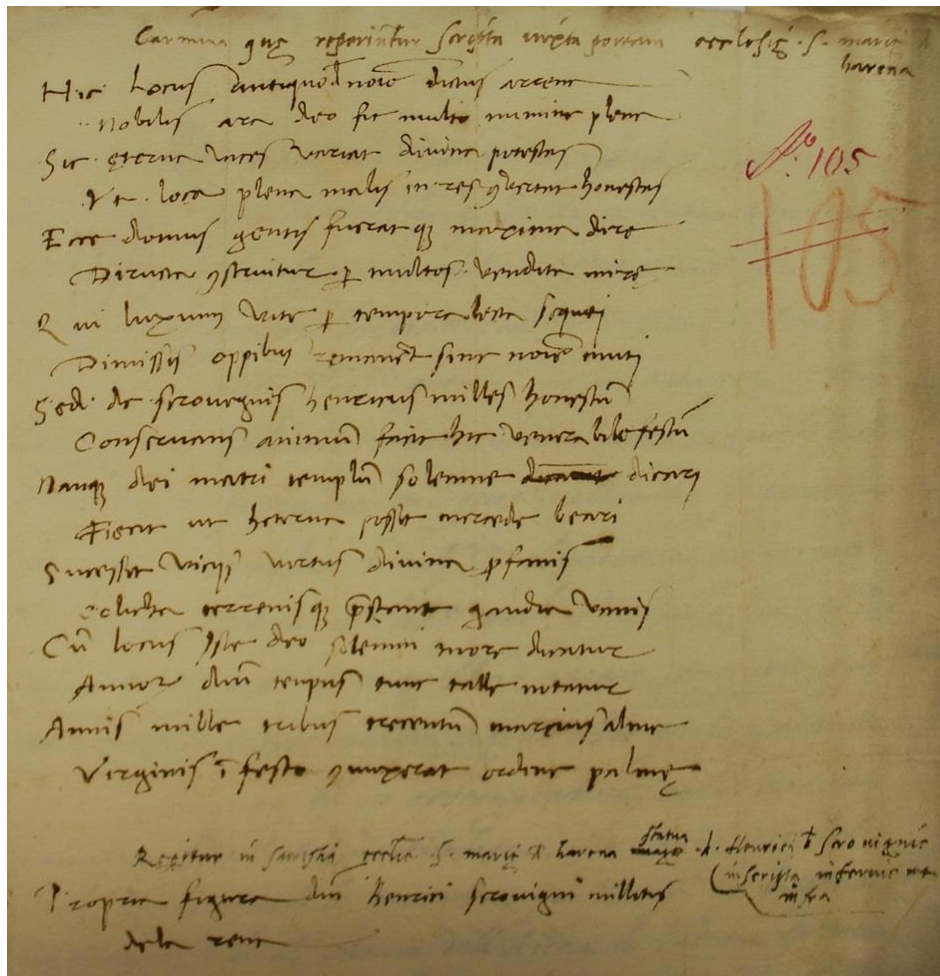 Carmina quę reperiũtur scripta iuxta portam ecclesię . s . marię d̃
harena
Hic Locus antiquo d̃ noĩe dictus arrene
Nobilis ara deo fit multo numine plena
Sic ęterna vices variat divina potestas
Vt loca plena malis in res ꝯvertat honestas
Ecce domus gentis fuerat que maxima dire
Diructa ꝯstruitur ꝑ multos vendita mirę
Qui luxum vite ꝑ tempora lęta sequti
Dimissis oppibus remanẽt sine noĩe muti
Sed de scrovegnis henricus milles honestũ
Conservans animũ facit hic venerabile festũ
Namque dei matri templũ solemne dicari
Fecit ut heterna possit mercede beari
Successit viciis virtus divina ꝓfanis
celica terrenisque prestant gaudia vanis
Cũ locus Iste deo solemni more dicatur
Annorꝝ dñi tempus tunc talle notatur
Annis mille tribus trecentũ marcius alme
Virginis ĩ festo ꝯiuxerat ordine palmę
No. 105
105
Regitur in sacristia ecclia s . marię d̃ harena statua d. Henrici d̃ scrovignis
inscripta inferius ut
infra
Propria figura dñi henrici scrovigni militis
dela rena